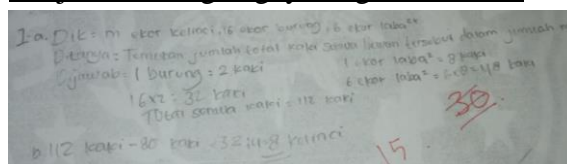 1.a. Dik = m ekor kelinci, 16 ekor burung, 6 ekor laba²
Ditanya = Tentukan jumlah total kaki semua hewan tersebut dalam jumlah
Dijawab = 1 burung = 2 kaki 1 ekor laba² = 8 kaki
16x2 = 32 kaki 6 ekor laba² = 6x8 = 48 kaki
Total semua kaki = 112 kaki
30
b. 112 kaki - 80 kaki = 32:4 = 8 kelinci
15